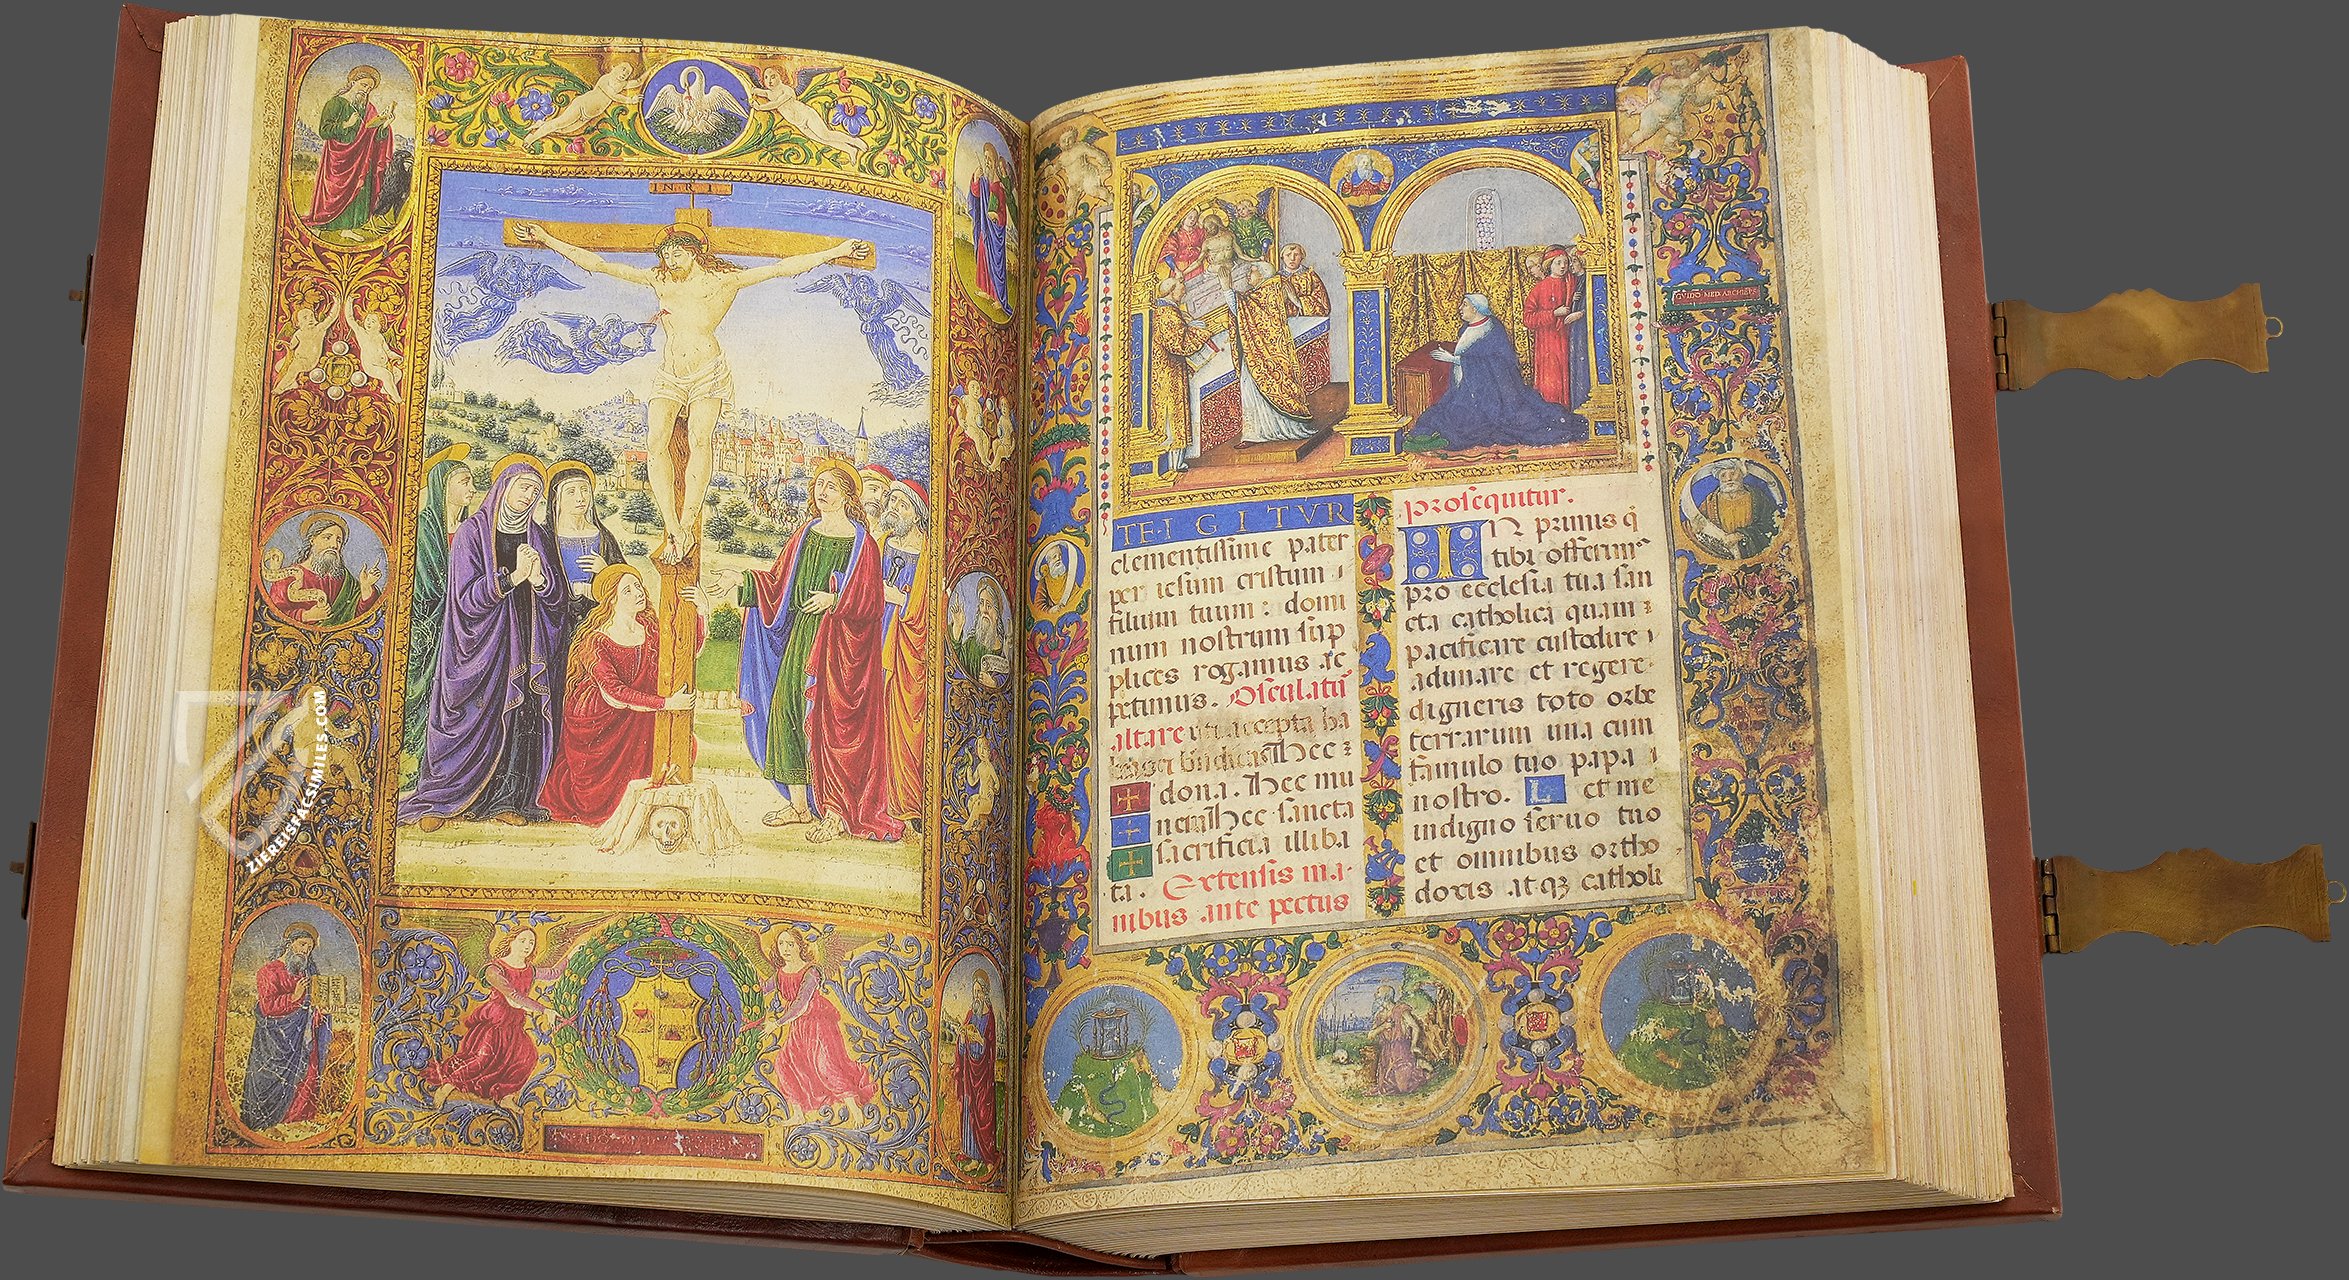 INRI
ZIEREISFACSIMILES.COM
GVIDO MED ARCHIEPS
TE·IGITVR
clementissime pater
per iesum cristum
filium tuum: domi
num nostrum sup
plices rogamus ac
petimus. Osculatur
altare uti accepta ha
beas et bn̄dicas Hec ⁊
dona. Hec mu
nera Hec sancta
sacrificia illiba
ta. Extensis ma
nibus ante pectus
prosequitur.
IN primis q̄
tibi offerim⁹
pro ecclesia tua san
cta catholica quam
pacificare custodire
adunare et regere
digneris toto orbe
terrarum una cum
famulo tuo papa
nostro. Et me
indigno seruo tuo
et omnibus ortho
doxis atqꝫ catholi